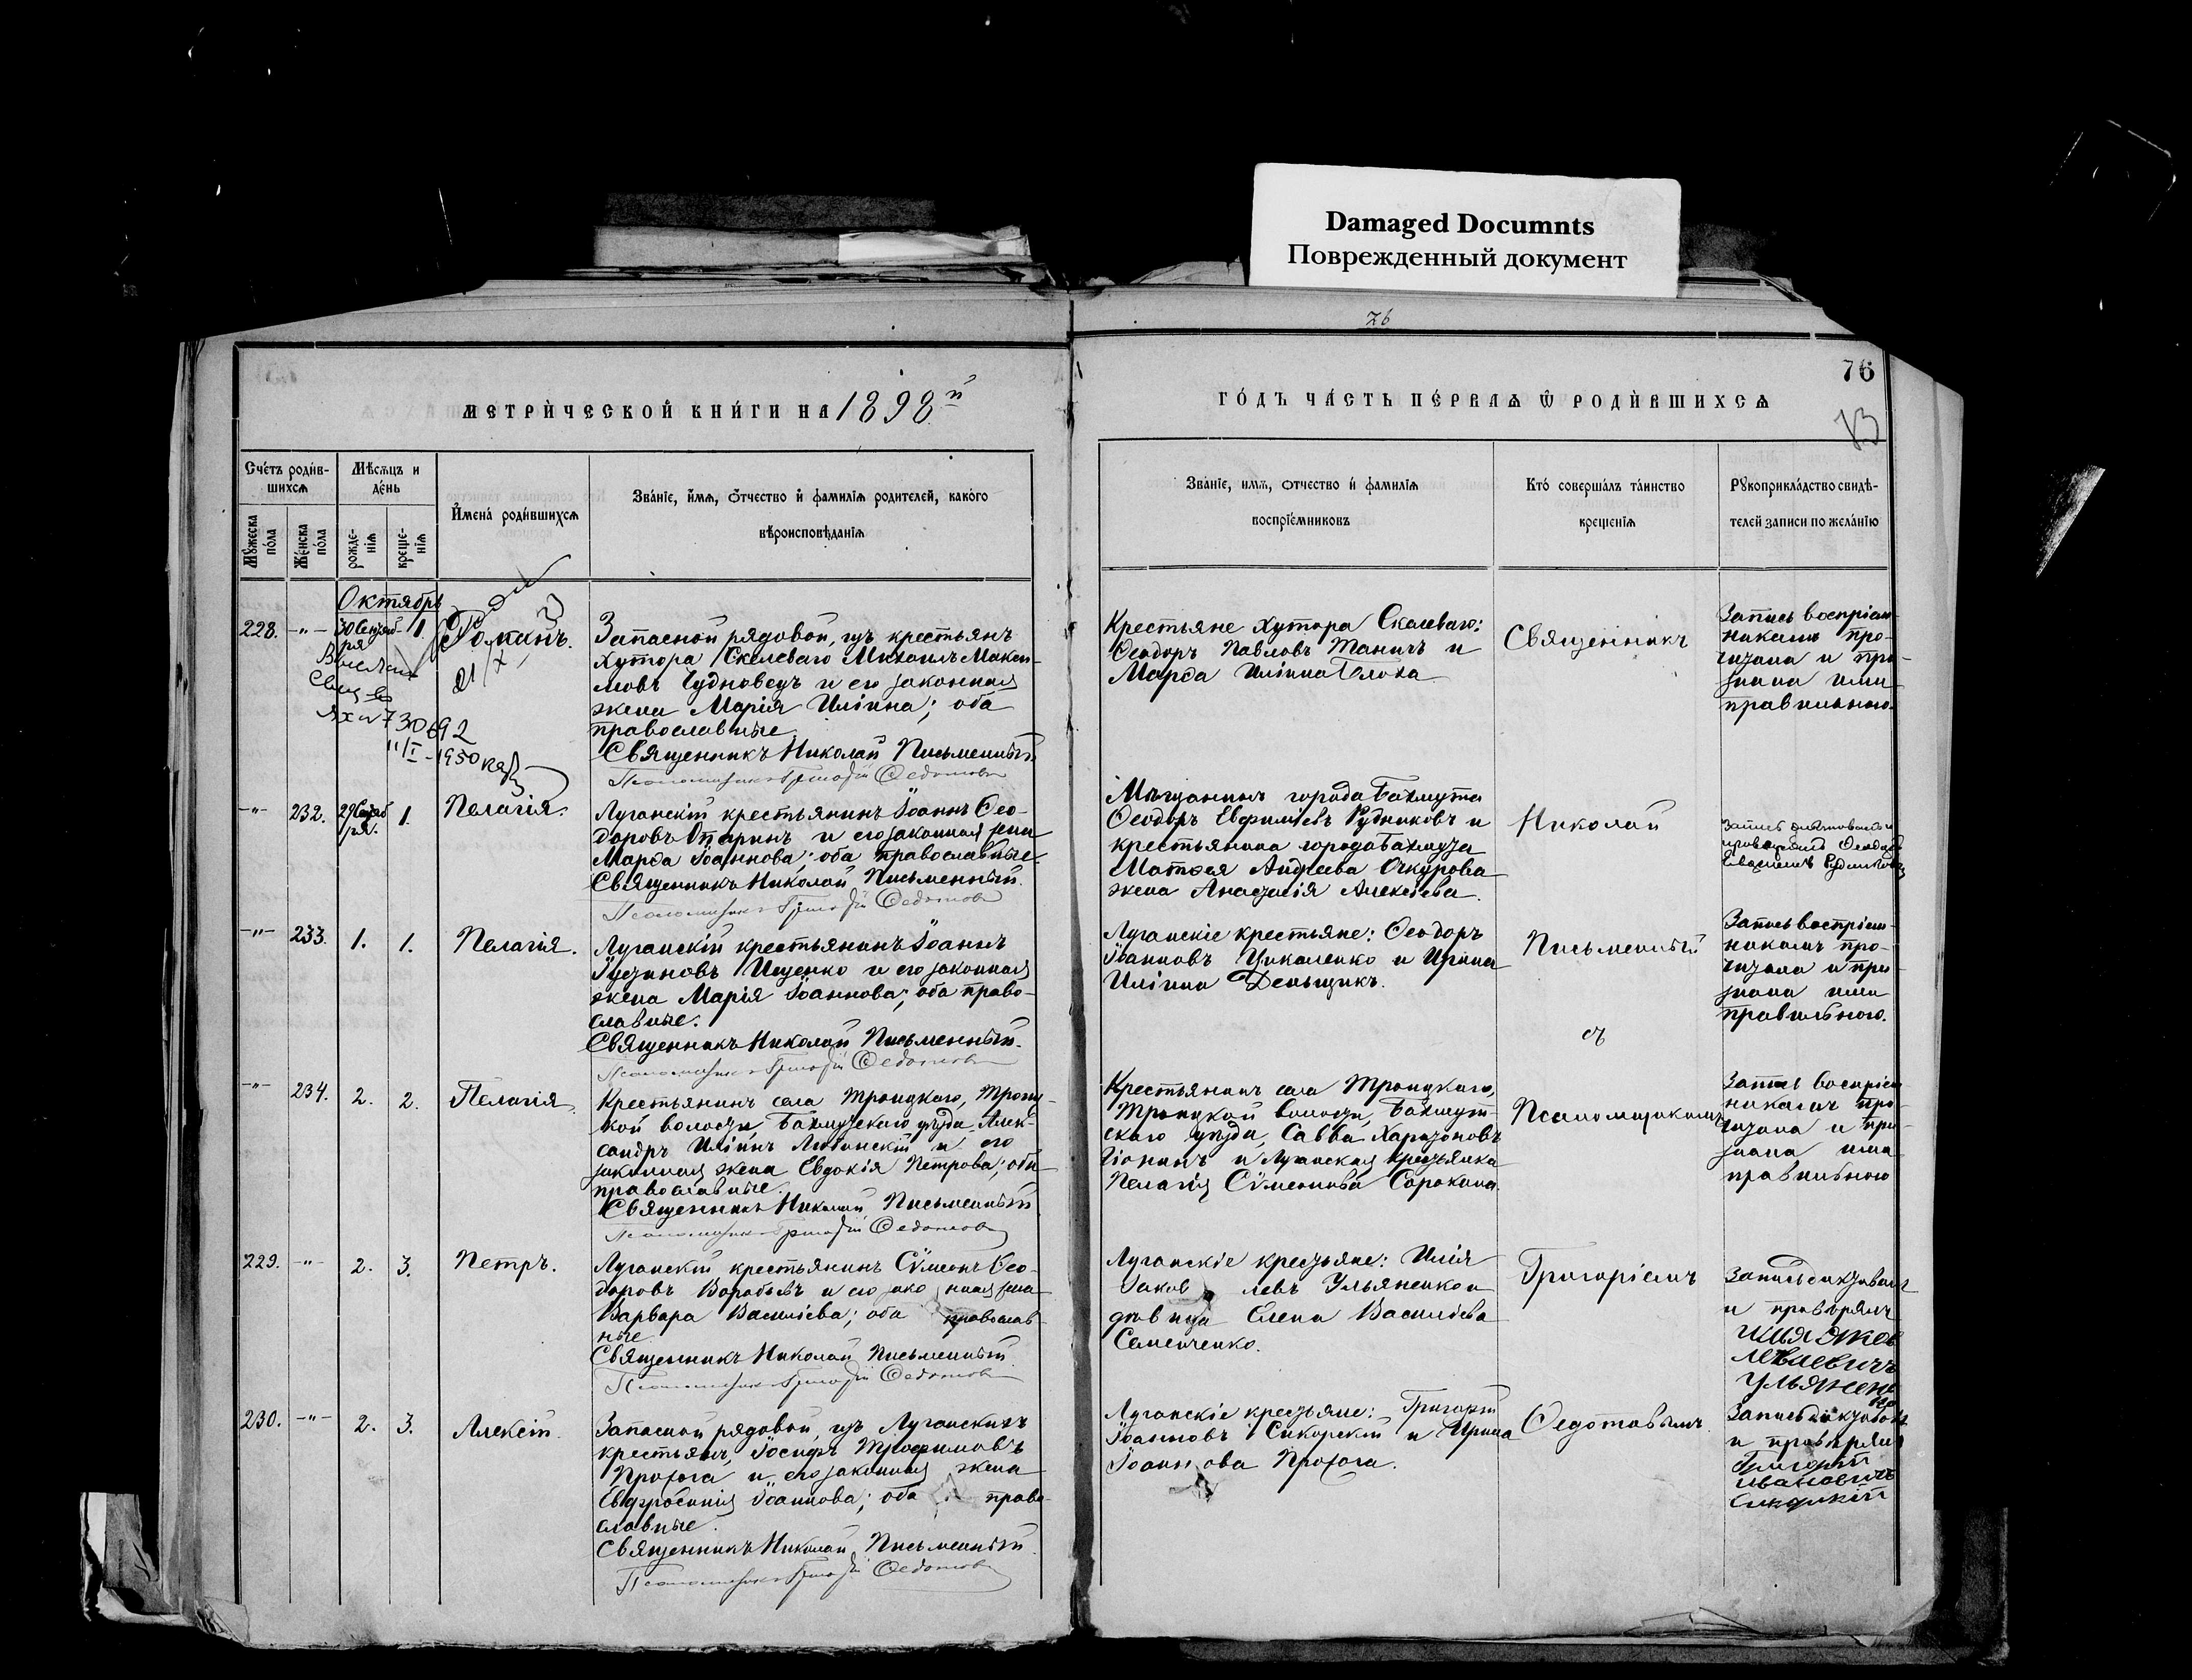 Damaged Documnts
Поврежденный документ
76
76
МЕТРИЧЕСКОЙ КНИГИ НА 1898й
ГОДЪ ЧАСТЬ ПЕРВАЯ Ѡ РОДИВШИХСЯ
Счетъ родив-
шихся
Мѣсяцъ и
день
Мужеска
пола
Женска
пола
рожде-
нія
креще-
нія
Имена родившихся
Званіе, имя, отчество и фамилія родителей, какого
вѣроисповѣданія
Званіе, имя, отчество и фамилія
воспріемниковъ
Кто совершалъ таинство
крещенія
Рукоприкладство свидѣ-
телей записи по желанію
Октябрь
228. -"- 30 Сентяб-
ря
1.
Романъ.
21/X
730692
11/I-1950
Запасной рядовой, изъ крестьянъ
хутора Скелеваго Михаилъ Макси-
мовъ Чудновецъ и его законная
жена Марія Иліина; оба
православные
Священникъ Николай Письменный
Псаломщикъ Григорій Ѳедотовъ
Крестьяне хутора Скелеваго:
Ѳеодоръ Павловъ Таничъ и
Марѳа Иліина Блоха
Священникъ
Запись воспріем-
никамъ про-
читана и при-
знана ими
правильною.
-"- 232. 29 Сентяб
ря.
1.
Пелагія.
Луганскій крестьянинъ Іоаннъ Ѳео-
доровъ Отаринъ и его законная жена
Марѳа Іоаннова; оба православные
Священникъ Николай Письменный.
Псаломщикъ Григорій Ѳедотовъ
Мѣщанинъ города Бахмута
Ѳеодоръ Евфиміевъ Рудниковъ и
крестьянина города Бахмута
Матѳея Андреева Очкурова
жена Анастасія Алексіева.
Николай
-"- 233. 1. 1. Пелагія.
Луганскій крестьянинъ Іоаннъ
Іустиновъ Ищенко и его законная
жена Марія Іоаннова; оба право-
славные.
Священникъ Николай Письменный.
Псаломщикъ Григорій Ѳедотовъ
Луганскіе крестьяне: Ѳеодоръ
Іоанновъ Цикаленко и Ирина
Иліина Деньщикъ.
Письменный
съ
Запись воспріем-
никамъ про-
читана и при-
знана ими
правильною.
-"- 234. 2. 2. Пелагія.
Крестьянинъ села Троицкаго, Троиц-
кой волости, Бахмутскаго уѣзда Алек-
сандръ Иліинъ Любинскій и его
законная жена Евдокія Петрова; оба
православные.
Священникъ Николай Письменный
Псаломщикъ Григорій Ѳедотовъ
Крестьянинъ села Троицкаго,
Троицкой волости, Бахмут-
скаго уѣзда, Савва Харитоновъ
и Луганская крестьянка
Пелагія Сѵмеонова Сорокина.
Псаломщикомъ
Запись воспріем
никамъ про-
читана и при-
знана ими
правильною
229. -"- 2. 3. Петръ.
Луганскій крестьянинъ Сѵмеонъ Ѳео-
доровъ Воробьевъ и его законная жена
Варвара Василіева; оба православ-
ные
Священникъ Николай Письменный.
Псаломщикъ Григорій Ѳедотовъ
Луганскіе крестьяне: Илія
Іаковлевъ Ульяненко и
дѣвица Елена Василіева
Семенченко.
Григоріемъ
Запись диктовалъ
и провѣрялъ
Илья Яков
левичъ
Ульянен
ко
230. -"- 2. 3. Алексій.
Запасной рядовой, изъ Луганскихъ
крестьянъ, Іосифъ Трофимовъ
Прохога и его законная жена
Евфросинія Іоаннова; оба право-
славные.
Священникъ Николай Письменный.
Псаломщикъ Григорій Ѳедотовъ
Луганскіе крестьяне: Григорій
Іоанновъ Сикорскій и Ирина
Іоаннова Прохога.
Ѳедотовымъ.
Запись диктовалъ
и провѣрялъ
Григорій
Ивановичъ
Сикорскій